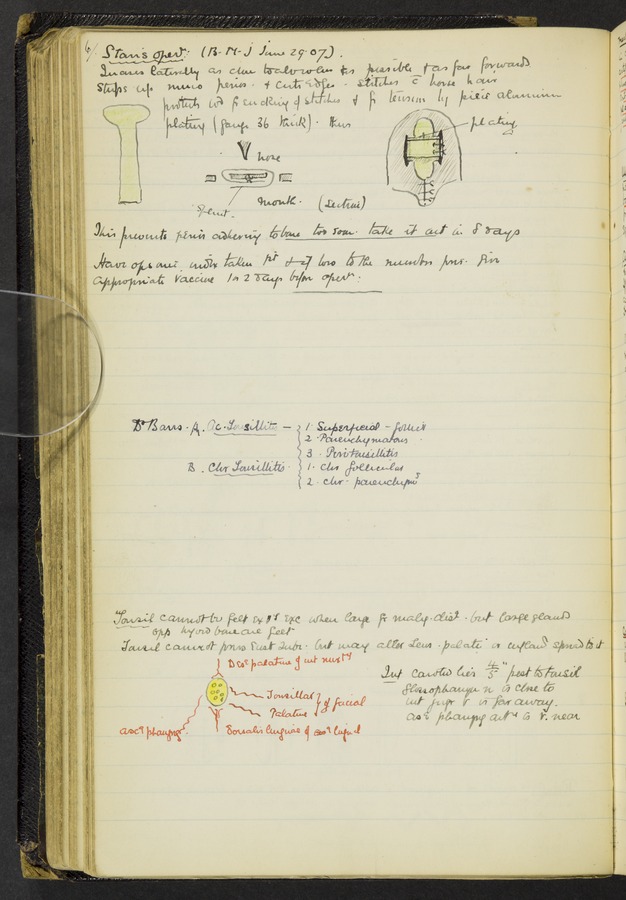 Stan's oper: (B.M.J June 29.07).
Incises laterally as close to alveolus as possible & as far forwards
strips up muco perios. & cuts edges. stitches c horse hair
protects wd fr sucking of stitches & fr tension by piece aluminium
plating (gauge 36 thick). thus
plating
nose
mouth. (section)
splint.
This prevents perios adhering to bone too soon. take it out in 8 days
Have opsonic index taken 1st
appropriate vaccine 1 or 2 days before oper:
Dr Barrs. A. Ac. Tonsillitis — 1. Superficial - follic
2. Parenchymatous.
3. Peritonsillitis
B. Chr Tonsillitis. 1. chr follicular
2. chr. parenchyms
Tonsil cannot be felt ext exc when large fr malig. dist. but large glands
opp hyoid bone are felt
Tonsil cannot press Eust tube. but may alter tens. palati
Desc palatine of int maxy
Tonsillar } of facial
Palatine
asc. pharyngl.
Dorsalis linguae of lingual
Int carotid lies 4/5" post to tonsil
glossopharyn n is close to
int jug v is far away.
asc pharyng art is v. near